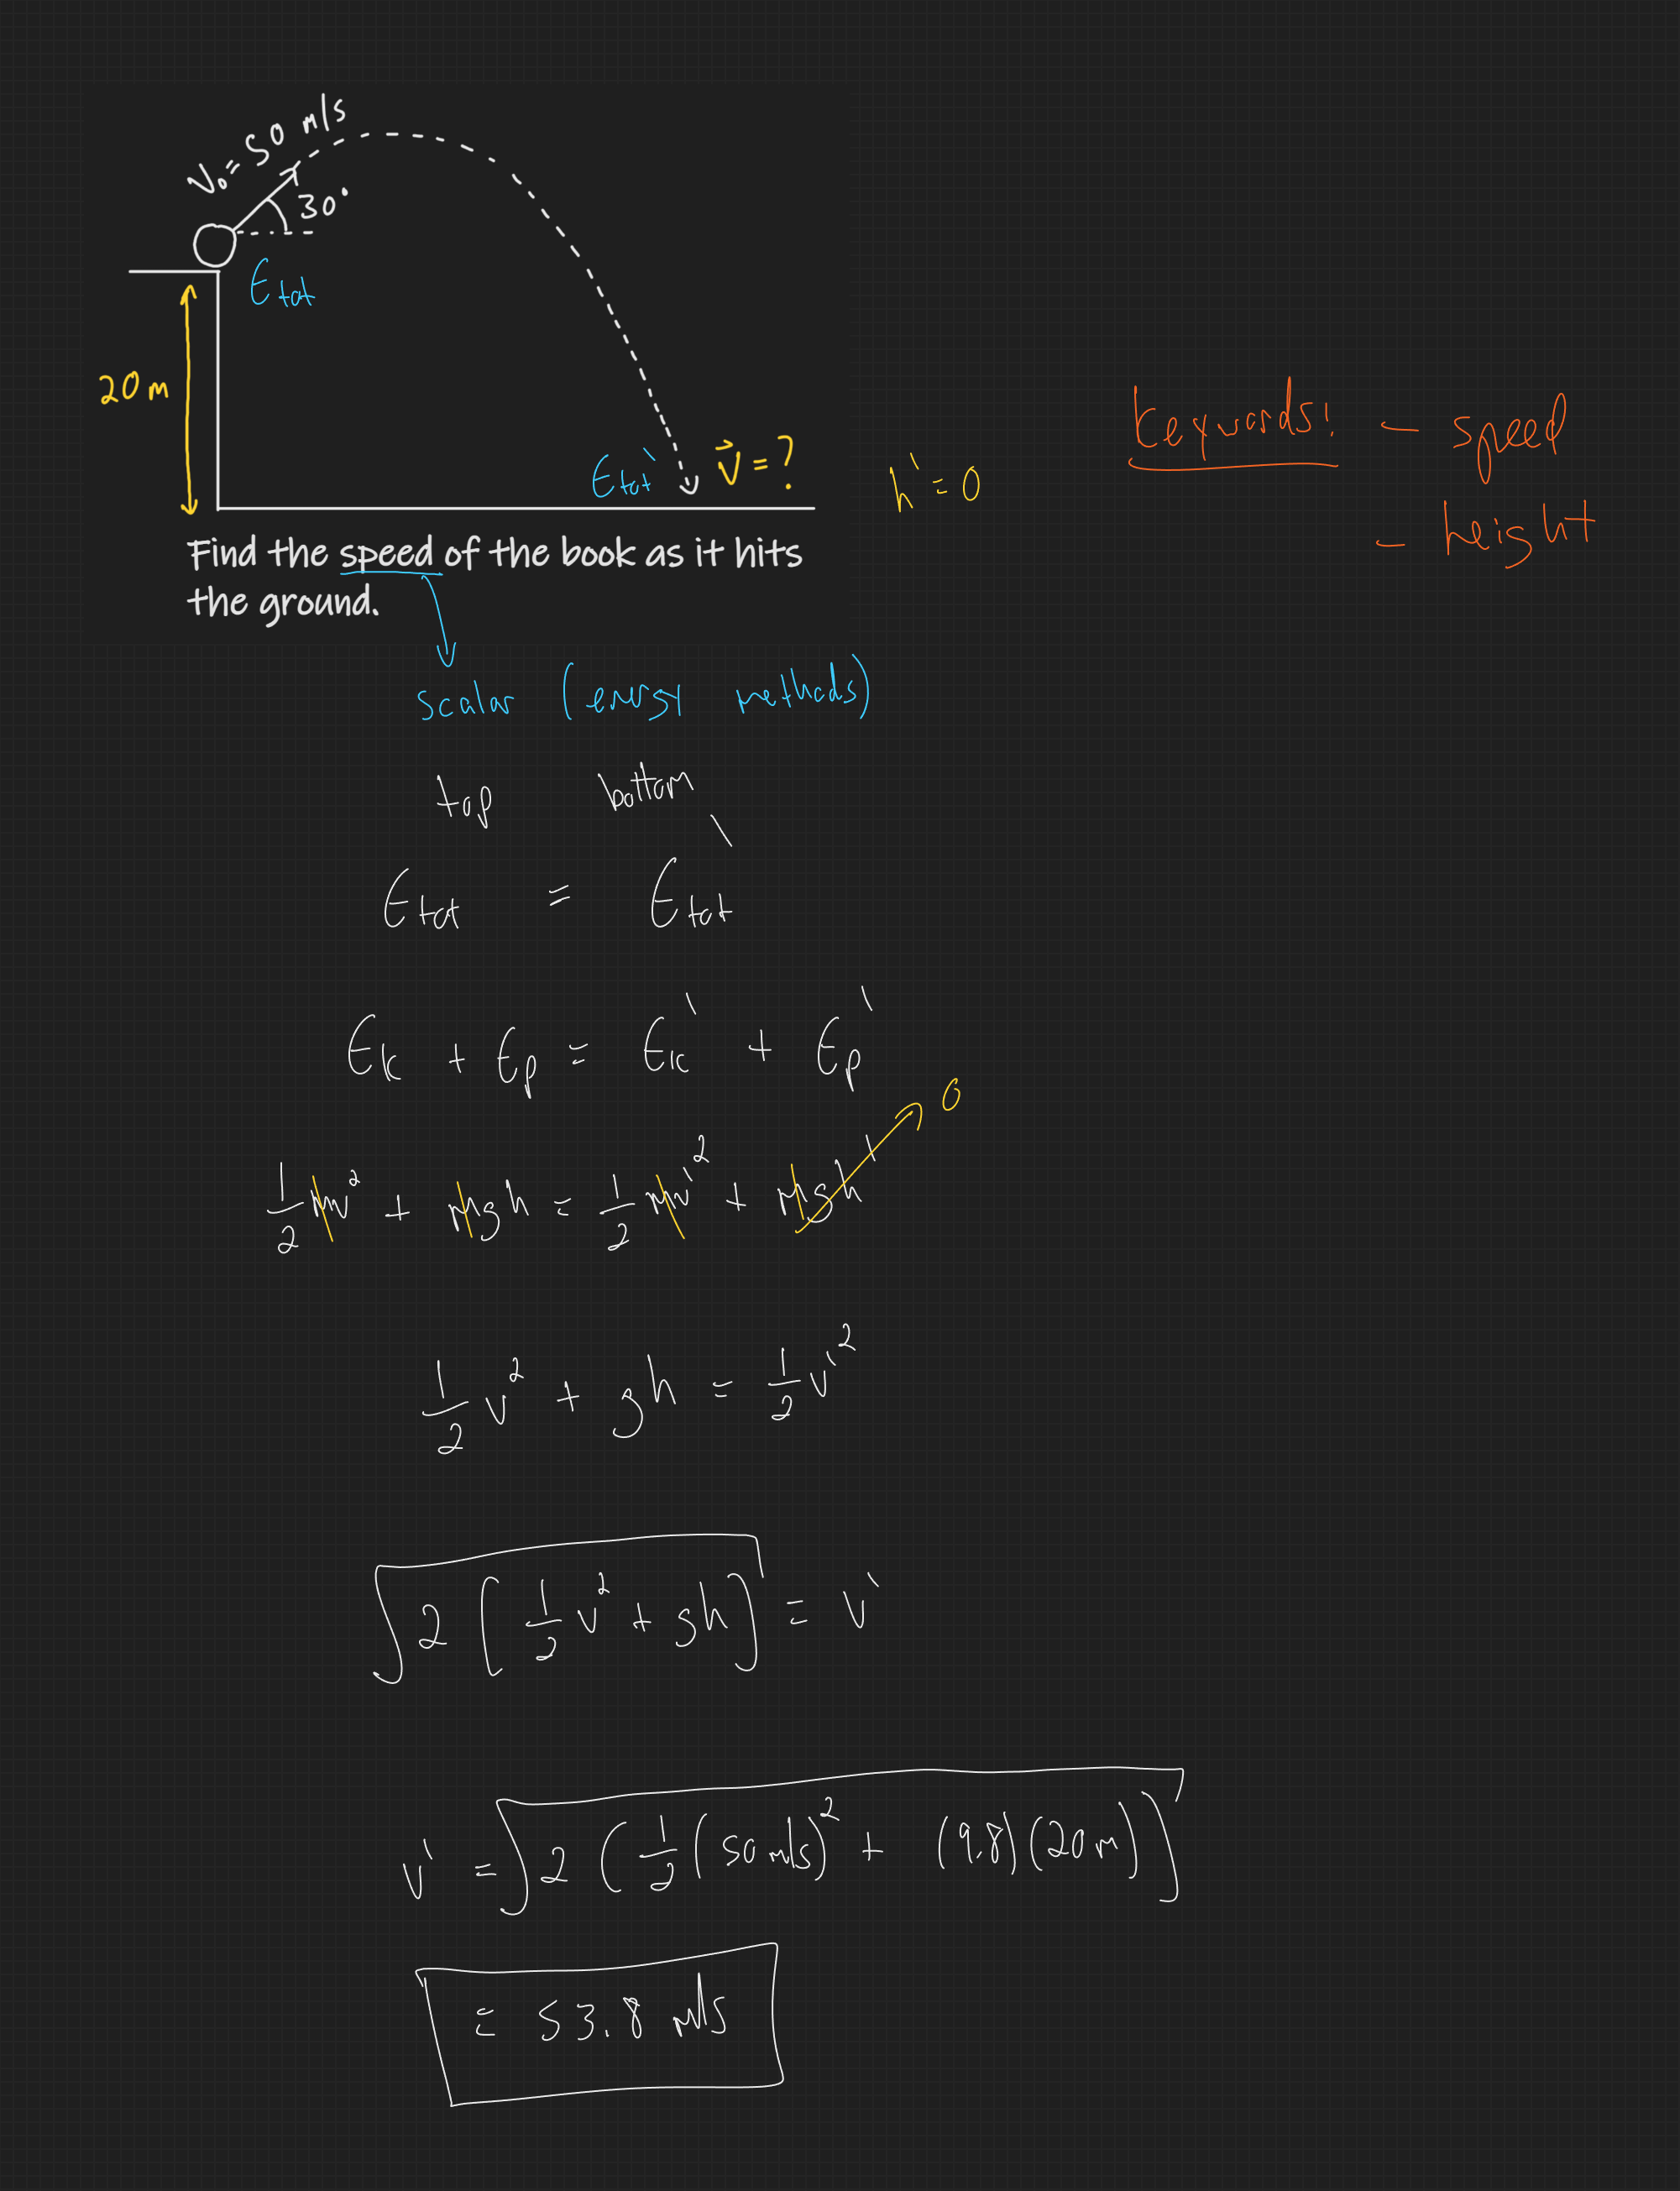 V₀ = 50 m/s
30°
Etot
20 m
Etot' v⃗ = ?
h' = 0
Keywords! - speed
- height
Find the speed of the book as it hits
the ground.
scalar (energy methods)
top bottom
Etot = Etot'
Ek + Ep = Ek' + Ep'
1/2 mv² + mgh = 1/2 mv'² + mgh' 0
1/2 v² + gh = 1/2 v'²
√2 [1/2 v² + gh] = v'
v' = √2 (1/2 (50 m/s)² + (9.8)(20 m))
= 53.8 m/s